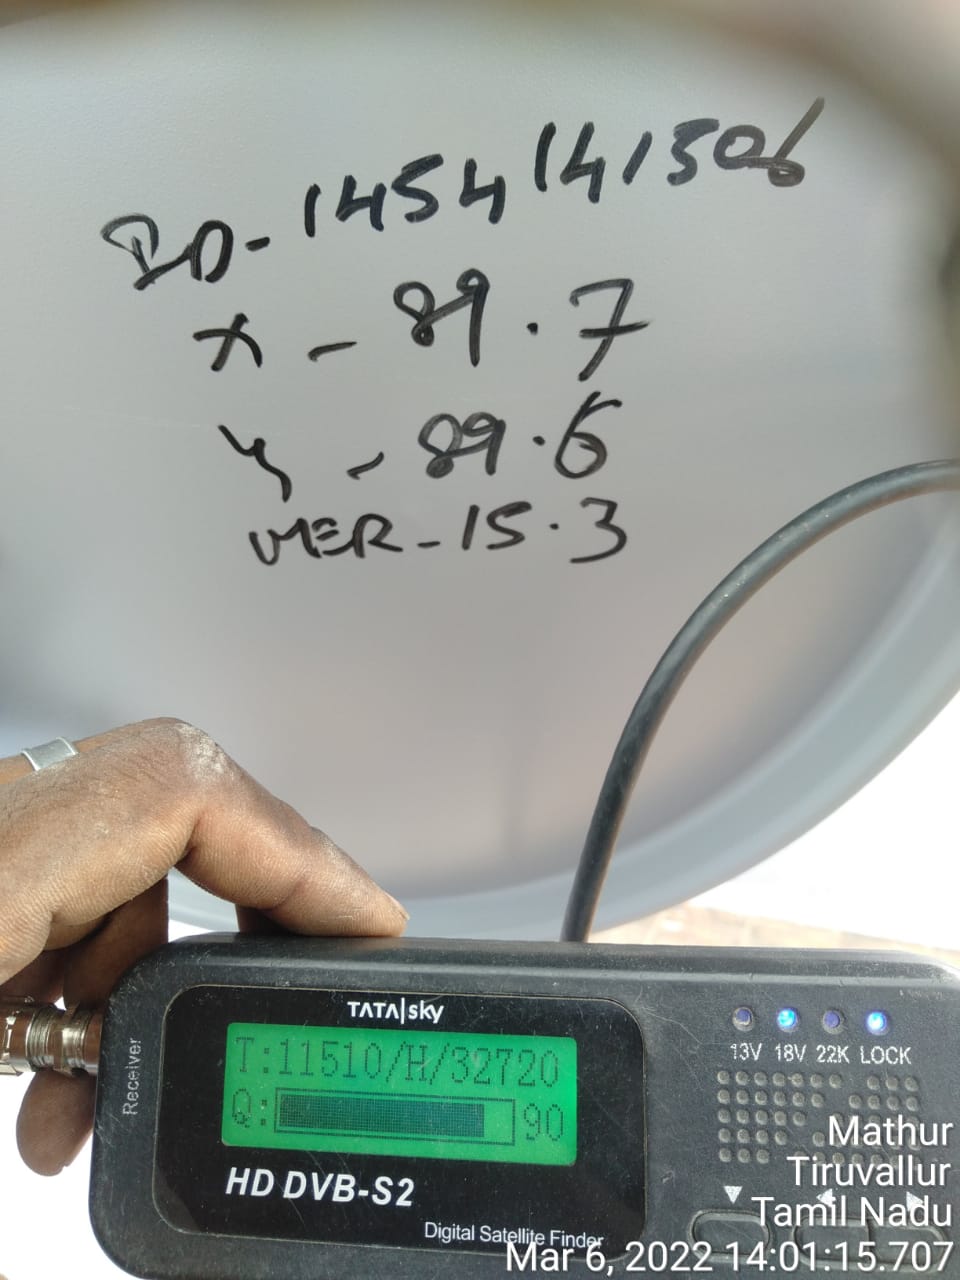 ID-1454141506
X - 89.7
Y - 89.6
MER-15.3
Receiver
TATA|sky
T:11510/H/32720
Q: 90
HD DVB-S2
Digital Satellite Finder
13V 18V 22K LOCK
Mathur
Tiruvallur
Tamil Nadu
Mar 6, 2022 14:01:15.707